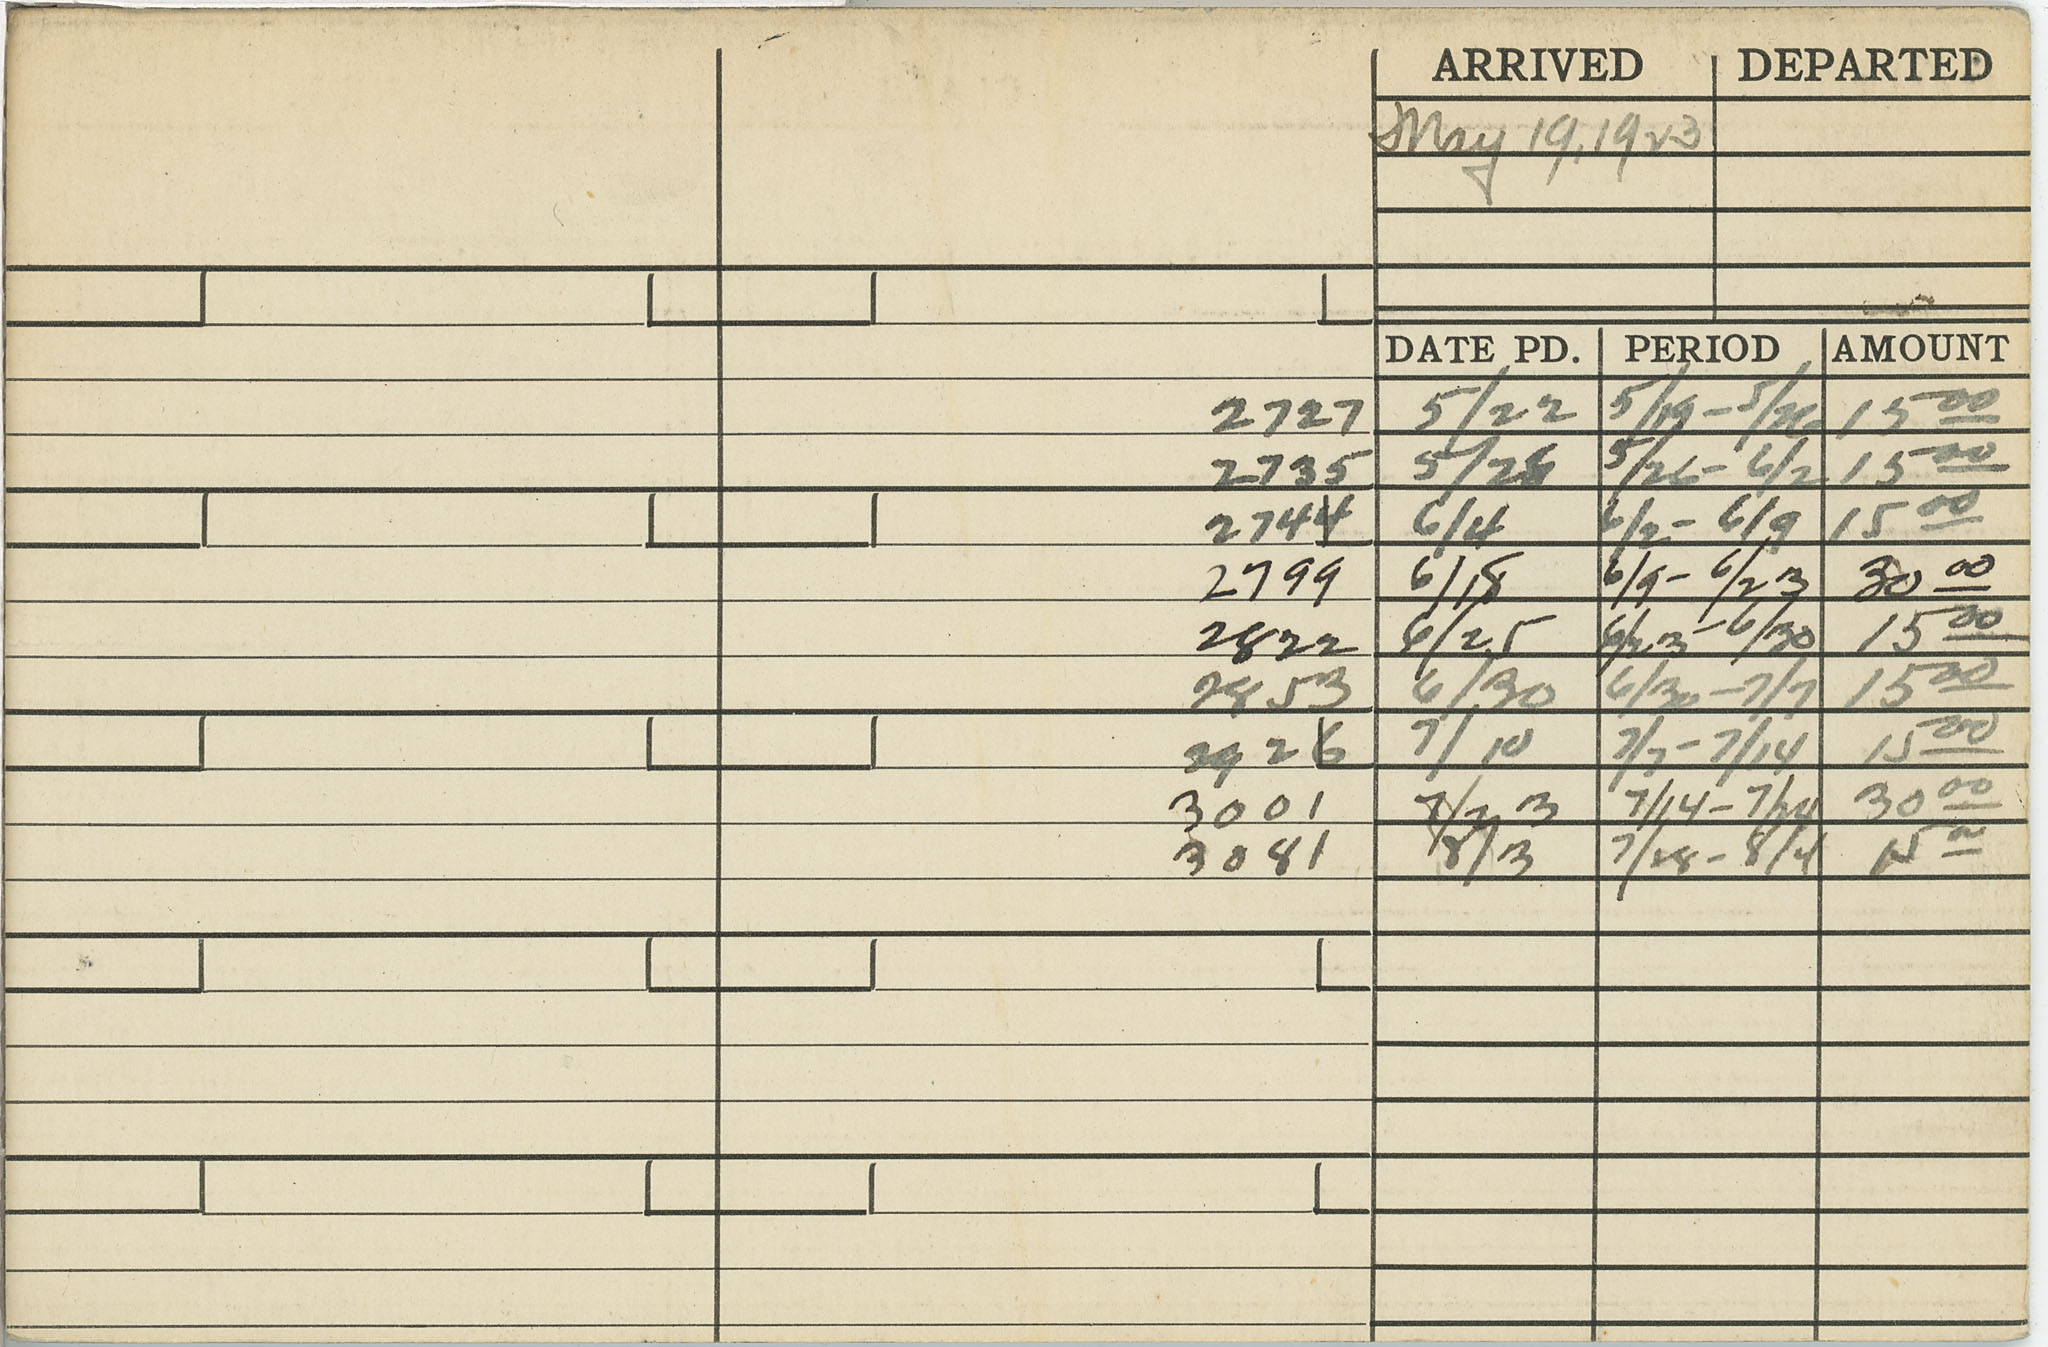 ARRIVED DEPARTED
May 19, 1923
DATE PD. PERIOD AMOUNT
2727 5/22 5/19 - 5/26 15 00
2735 5/28 5/26 - 6/2 15 00
2744 6/4 6/2 - 6/9 15 00
2799 6/18 6/9 - 6/23 30 00
2822 6/25 6/23 - 6/30 15 00
2853 6/30 6/30 - 7/7 15 00
2926 7/10 7/7 - 7/14 15 00
3001 7/23 7/14 - 30 00
3081 8/3 7/28 - 8/4 15 00